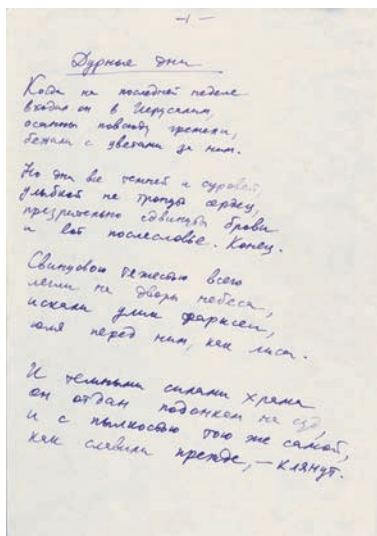 -1-
Дурные дни
Когда на последней неделе
входил он в Иерусалим,
осанны повсюду гремели,
бежали с цветами за ним.
Но дни все темней и суровей,
улыбкой не тронуть сердец,
презрительно сдвинуты брови
и вот послесловье. Конец.
Свинцовою тяжестью всею
легли на дворы небеса,
искали улик фарисеи,
юля перед ним, как лиса.
И темными силами храма
он отдан подонкам на суд,
и с пылкостью тою же самой,
как славили прежде, – клянут.